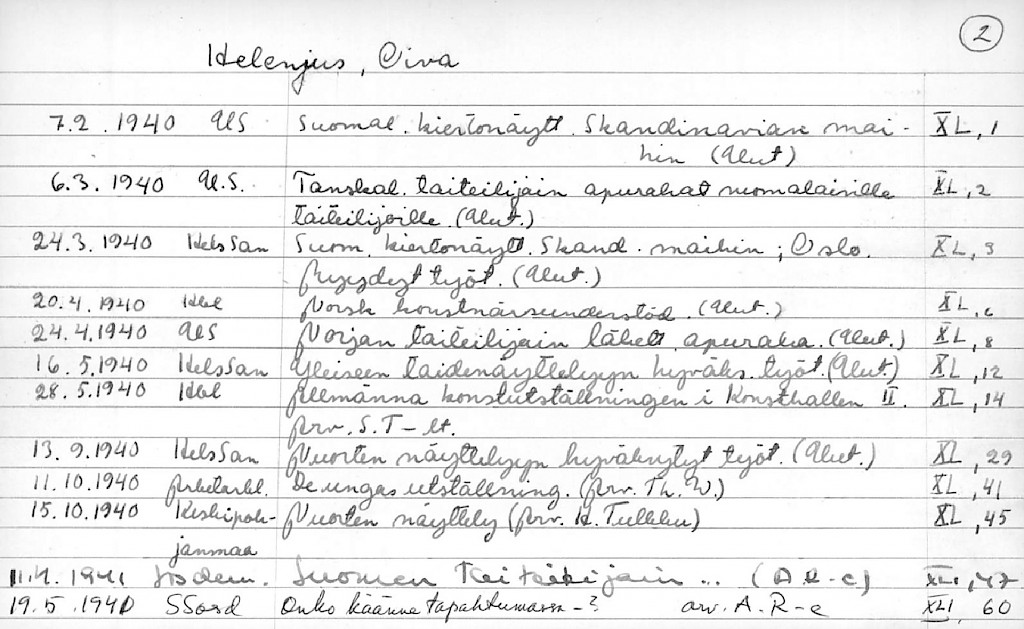 2
Helenjus, Oiva
7.2.1940 US Suomal. kiertonäytt. Skandinavian mai- XL,1
hin (Alut)
6.3.1940 U.S. Tanskal. taiteilijain apurahat suomalaisille XL,2
taiteilijoille. (Alut.)
24.3.1940 HelsSan Suom. kiertonäytt. Skand. maihin; Oslo. XL,3
Myydyt työt. (Alut.)
20.4.1940 Hbl Norsk konstnärsunderstöd. (Alut.) XL,6
24.4.1940 US Norjan taiteilijain lähett. apuraha. (Alut.) XL,8
16.5.1940 HelsSan Yleiseen taidenäyttelyyn hyväks. työt. (Alut) XL,12
28.5.1940 Hbl Allmänna konstutställningen i Konsthallen II. XL,14
Arv. S.T-lt.
13.9.1940 HelsSan Nuorten näyttelyyn hyväksytyt työt. (Alut.) XL,29
11.10.1940 Arbetarbl. De ungas utställning. (Arv. Th. W.) XL,41
15.10.1940 Keskipoh- Nuorten näyttely (Arv. H. Tulkku) XL,45
janmaa
1941 Sosdem. Suomen Taiteilijain ... (A R-e) XLI,47
19.5.1940 SSosd Onko käänne tapahtumassa-? arv. A.R-e XLI, 60